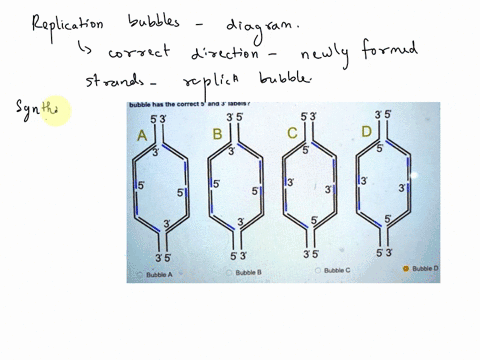 Replication bubbles - diagram.
↳ correct direction - newly formed
strands - replicA bubble.
Synth
bubble has the correct 5' and 3' labels?
5' 3' 3' 5' 5' 3' 3' 5'
A B C D
3' 3' 5' 5'
5' 5' 5' 5' 3' 3' 3' 3'
3' 3' 5' 5'
3' 5' 5' 3' 3' 5' 5' 3'
Bubble A Bubble B Bubble C Bubble D